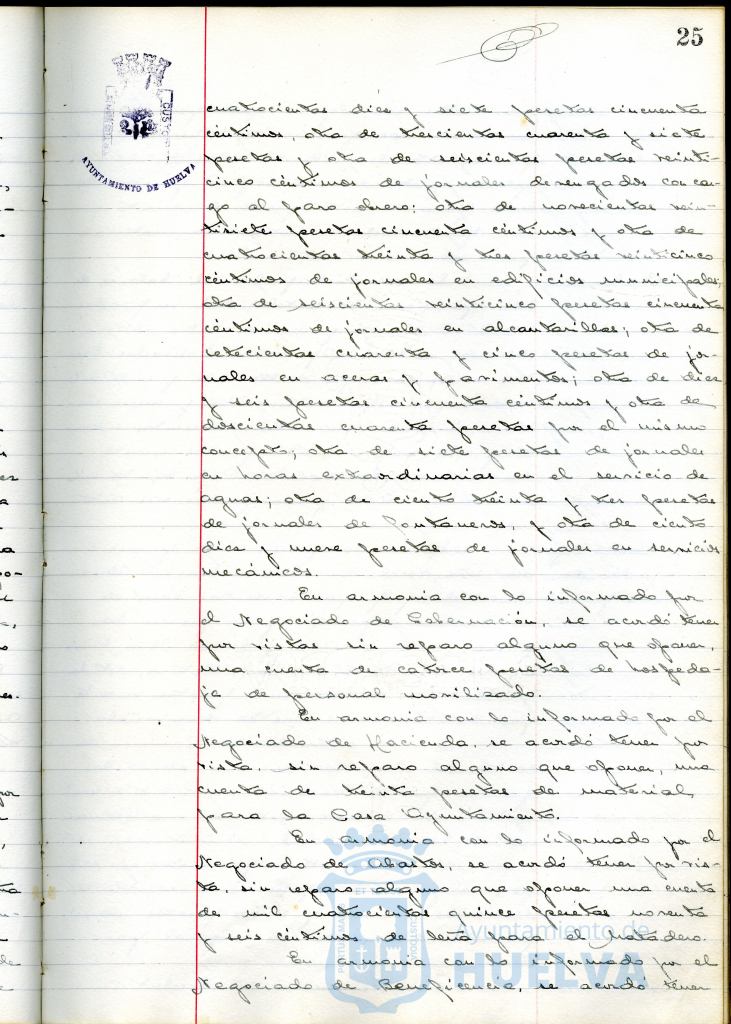 25
AYUNTAMIENTO DE HUELVA
cuatrocientas diez y siete pesetas cincuenta
céntimos, otra de trescientas cuarenta y siete
pesetas y otra de seiscientas pesetas veinti-
cinco céntimos de jornales devengados con car-
go al paro obrero; otra de novecientas vein-
tisiete pesetas cincuenta céntimos y otra de
cuatrocientas treinta y tres pesetas veinticinco
céntimos de jornales en edificios municipales;
otra de seiscientas veinticinco pesetas cincuenta
céntimos de jornales en alcantarillas; otra de
setecientas cuarenta y cinco pesetas de jor-
nales en aceras y pavimentos; otra de diez
y seis pesetas cincuenta céntimos y otra de
doscientas cuarenta pesetas por el mismo
concepto; otra de siete pesetas de jornales
en horas extraordinarias en el servicio de
aguas; otra de ciento treinta y tres pesetas
de jornales de fontaneros, y otra de ciento
diez y nueve pesetas de jornales en servicios
mecánicos.
En armonia con lo informado por
el Negociado de Gobernación, se acordó tener
por vistas sin reparo alguno que oponer,
una cuenta de catorce pesetas de hospeda-
je de personal movilizado.
En armonia con lo informado por el
Negociado de Hacienda, se acordó tener por
vista, sin reparo alguno que oponer, una
cuenta de treinta pesetas de material
para la Casa Ayuntamiento.
En armonia con lo informado por el
Negociado de Abastos, se acordó tener por vis-
ta, sin reparo alguno que oponer una cuenta
de mil cuatrocientas quince pesetas noventa
y seis céntimos de leña para el Matadero.
En armonia con lo informado por el
Negociado de Beneficencia, se acordó tener
Ayuntamiento de
HUELVA